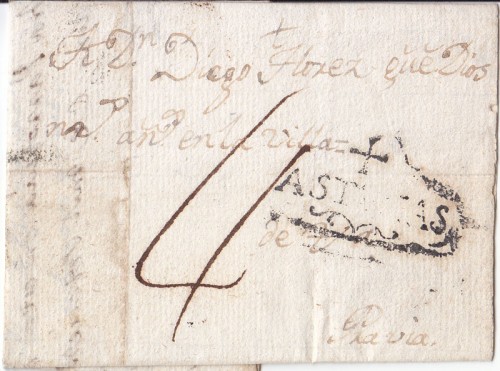 A Dn Diego Florez que Dios
ms as en la villa=
4
ASTURIAS
de
Pravia.